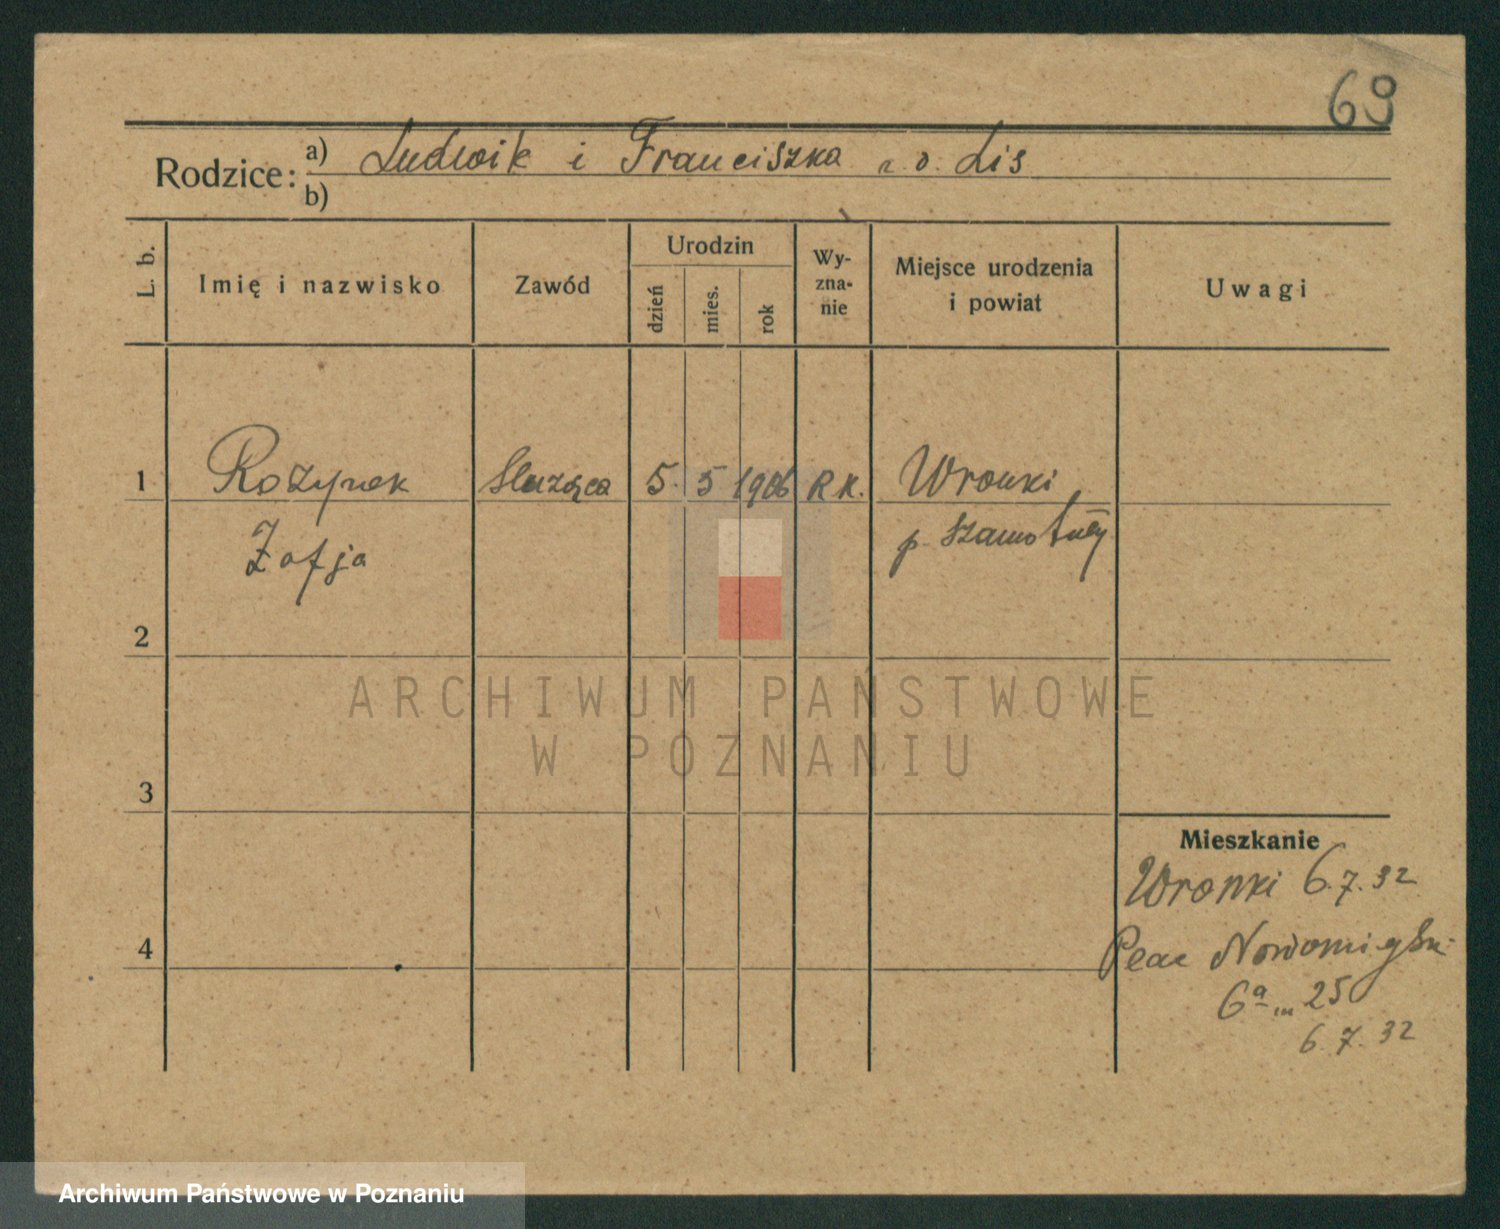 69
Rodzice: a) Ludwik i Franciszka z. d. Lis
b)
L. b.
Imię i nazwisko
Zawód
Urodzin
dzień
mies.
rok
Wy-
zna-
nie
Miejsce urodzenia
i powiat
Uwagi
1 Rożynek Służąca 5. 5 1906 R.K. Wronki
Zofja p. Szamotuły
2
ARCHIWUM PAŃSTWOWE
W POZNANIU
3
Mieszkanie
Wronki 6.7.32
4 Plac Nowomiejski
6a m 25
6.7.32
Archiwum Państwowe w Poznaniu